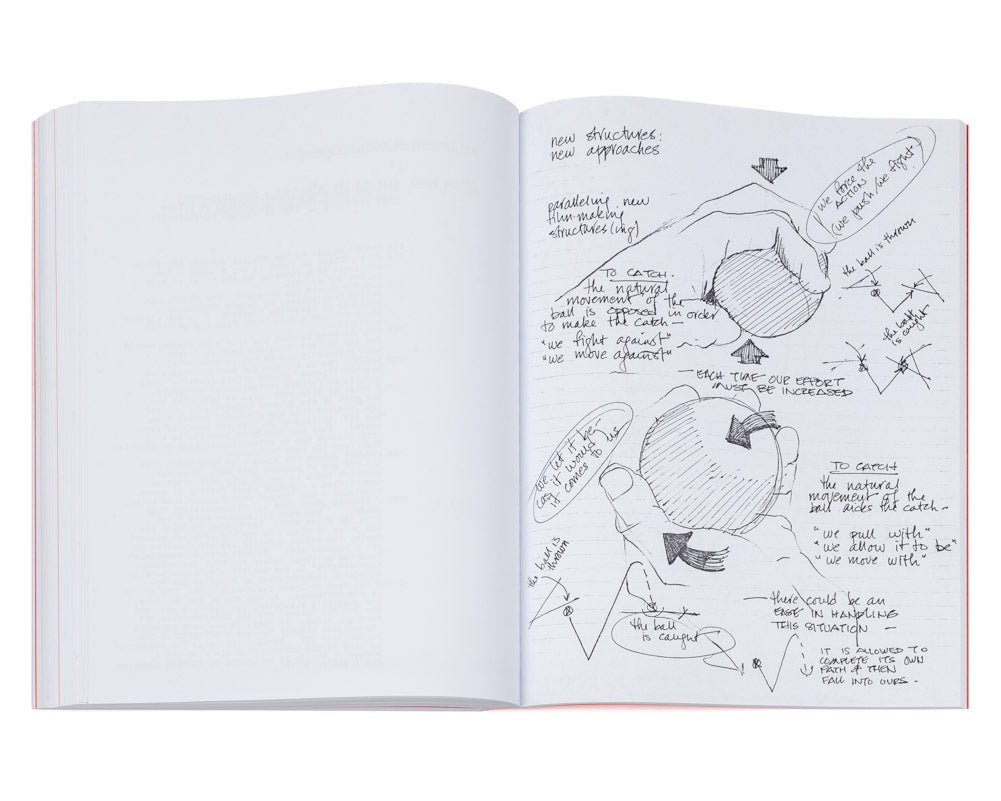 new structures:
new approaches
paralleling new
film-making
structures (ing)
we force the
ACTION
(we push/we fight)
TO CATCH.
the natural
movement of the
ball is opposed in order
to make the catch —
"we fight against"
"we move against"
the ball is thrown
the ball
is caught
— EACH TIME OUR EFFORT
MUST BE INCREASED
we let it be —
as it would
it comes to us
TO CATCH
the natural
movement of the
ball aids the catch —
"we pull with"
"we allow it to be"
"we move with"
the ball is
thrown
the ball
is caught
— there could be an
EASE IN HANDLING
THIS SITUATION —
IT IS ALLOWED TO
COMPLETE ITS OWN
PATH & THEN
FALL INTO OURS -